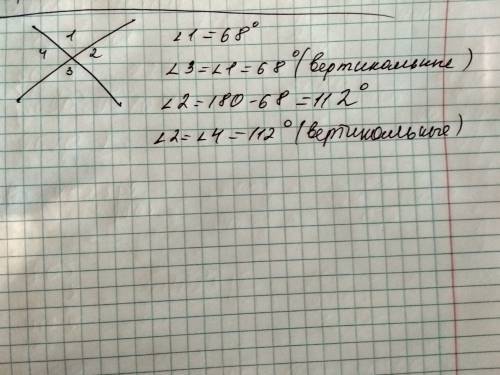 1
4 2
3
∠1 = 68°
∠3 = ∠1 = 68° (вертикальные)
∠2 = 180 - 68 = 112°
∠2 = ∠4 = 112° (вертикальные)